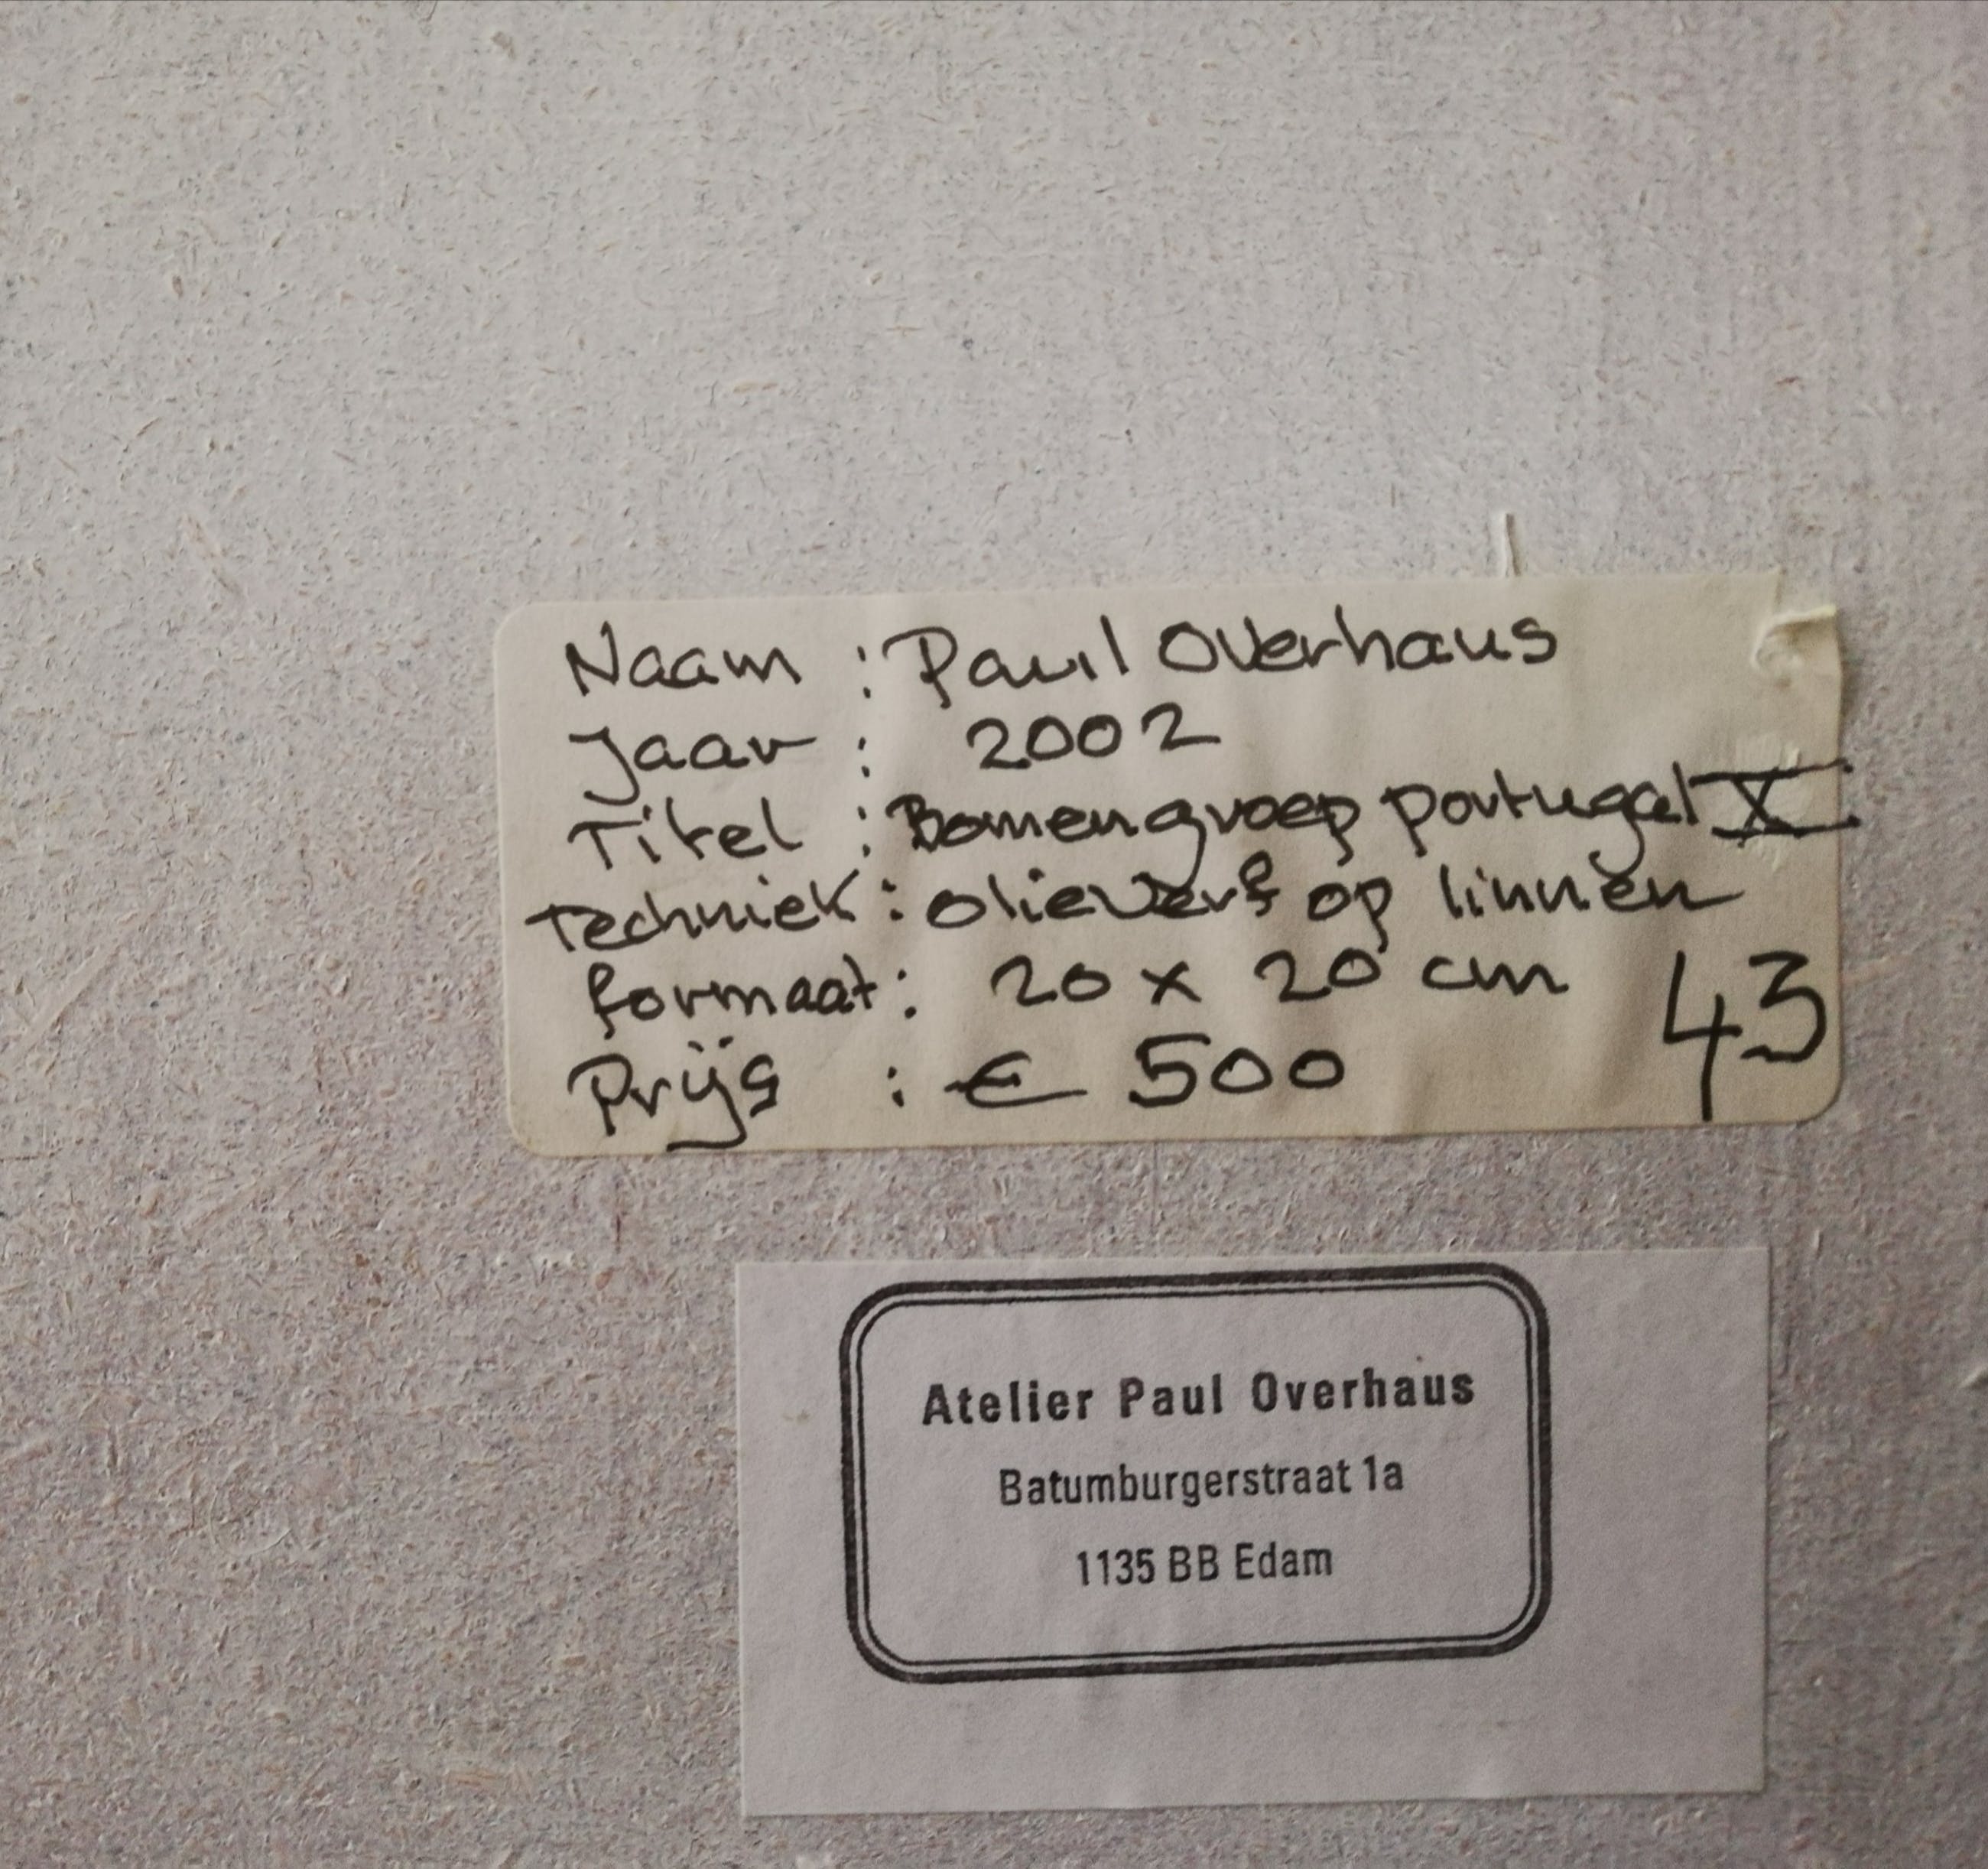 Naam : Paul Overhaus
Jaar : 2002
Titel : Bomengroep portugal X
Techniek : olieverf op linnen
formaat : 20 x 20 cm
43
Prijs : € 500
Atelier Paul Overhaus
Batumburgerstraat 1a
1135 BB Edam